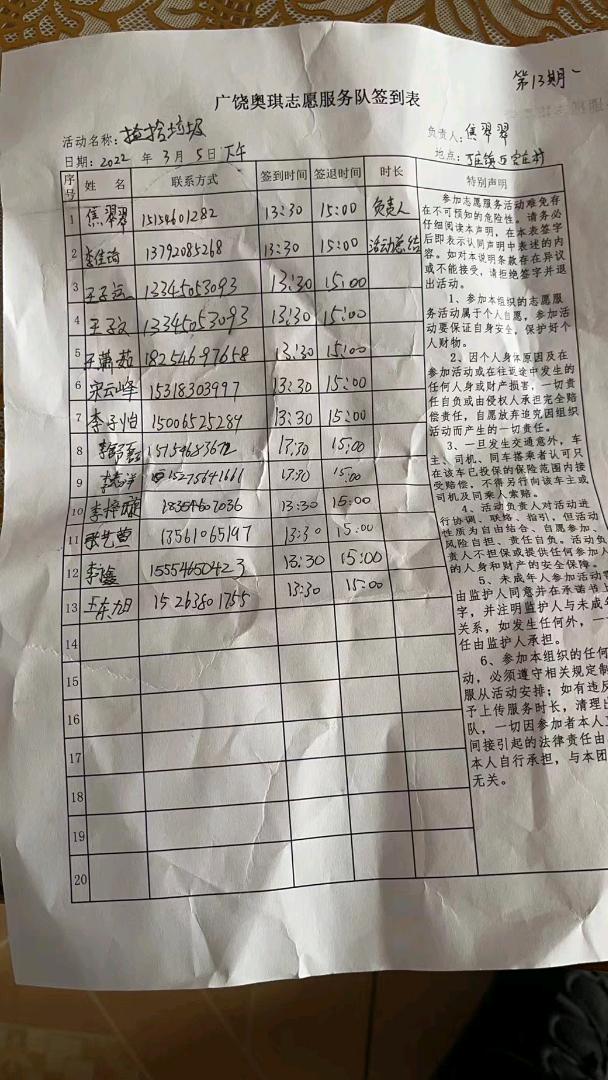 第13期
广饶奥琪志愿服务队签到表
活动名称: 捡拾垃圾 负责人: 焦翠翠
日期: 2022 年 3 月 5 日 下午 地点:
序号 姓 名 联系方式 签到时间 签退时间 时长 特别声明
1 焦翠翠 15154601282 13:30 15:00 负责人
2 李佳琦 13792085268 13:30 15:00 活动总结
3 王子 13345053093 13:30 15:00
4 王子文 13345053093 13:30 15:00
5 王麟茹 18254697658 13:30 15:00
6 宋云峰 15318303997 13:30 15:00
7 李子怡 15006525289 13:30 15:00
8 15:00
9 15275641661 15:00
10 李梓璇 18354607036 13:30 15:00
11 张艺萱 13561065197 13:30 15:00
12 李鑫 15554650423 13:30 15:00
13 王东旭 15263801755 13:30 15:00
14
15
16
17
18
19
20
参加志愿服务活动难免存
在不可预知的危险性。请务必
仔细阅读本声明，在本表签字
后即表示认同声明中表述的内
容。如对本说明条款存在异议
或不能接受，请拒绝签字并退
出活动。
1、参加本组织的志愿服
务活动属于个人自愿，参加活
动要保证自身安全，保护好个
人财物。
2、因个人身体原因及在
参加活动或在往返途中发生的
任何人身或财产损害，一切责
任自负或由侵权人承担完全赔
偿责任，自愿放弃追究因组织
活动而产生的一切责任。
3、一旦发生交通意外，车
主、司机、同车搭乘者认可只
在该车已投保的保险范围内接
受赔偿，不得另行向该车主或
司机及同乘人索赔。
4、活动负责人对活动进
行协调、联络、指引，但活动
性质为自由结合、自愿参加、
风险自担、责任自负。活动负
责人不担保或提供任何参加人
的人身和财产的安全保障。
5、未成年人参加活动需
由监护人同意并在承诺书上
字，并注明监护人与未成年
关系，如发生任何意外，一
任由监护人承担。
6、参加本组织的任何
动，必须遵守相关规定制
服从活动安排；如有违反
予上传服务时长，清理出
队，一切因参加者本人
间接引起的法律责任由
本人自行承担，与本团
无关。